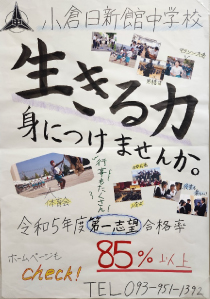 小倉日新館中学校
生きる力
身につけませんか。
行事もたくさん
体育会
令和5年度第一志望合格率
85%以上
ホームページも
check!
TEL 093-951-1392